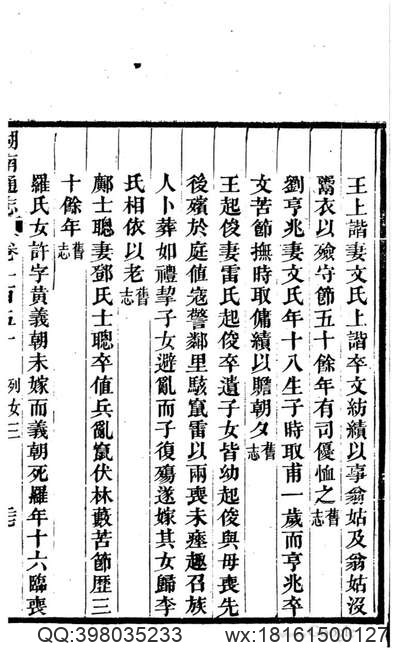 王上諧妻文氏上諧卒文紡績以事翁姑及翁姑沒
鬻衣以殮守節五十餘年有司優恤之舊志
劉亨兆妻文氏年十八生子時取甫一歲而亨兆卒
文苦節撫時取傭績以贍朝夕舊志
王起俊妻雷氏起俊卒遺子女皆幼起俊與母喪先
後殯於庭値寇警鄰里駭竄雷以兩喪未瘞趣召族
人卜葬如禮挈子女避亂而子復殤遂嫁其女歸李
氏相依以老舊志
鄺士聰妻鄧氏士聰卒値兵亂竄伏林藪苦節歴三
十餘年舊志
羅氏女許字黃義朝未嫁而義朝死羅年十六臨喪
湖南通志 卷二百五十 列女三
QQ:398035233 wx:18161500127